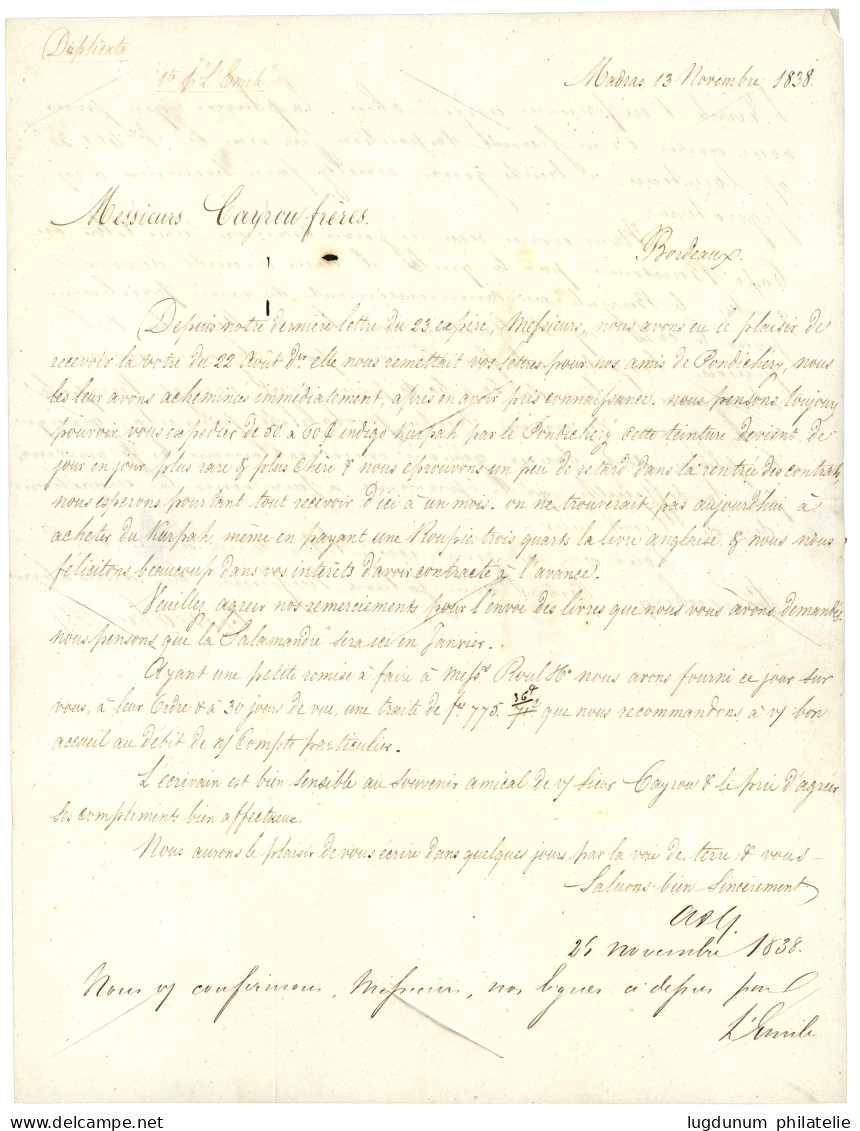 Duplicata
1re p "L'Emile"
Madras 13 Novembre 1838.
Messieurs Cayrou frères.
Bordeaux.
Depuis notre dernière lettre du 23 expiré, Messieurs, nous avons eu le plaisir de
recevoir la votre du 22 Août dr. elle nous remettait vos lettres pour nos amis de Pondichery, nous
les leur avons acheminées immédiatement, après en avoir pris connaissance. nous pensons toujours
pouvoir vous expedier de 50 à 60 indigo Kurpah par le Pondichery cette teinture devient de
jour en jour plus rare & plus chère & nous eprouvons un peu de retard dans la rentrée des contrats,
nous esperons pourtant tout recevoir d'ici à un mois. on ne trouverait pas aujourd'hui à
acheter du Kurpah, même en payant une Roupie trois quarts la livre anglaise & nous nous
félicitons beaucoup dans vos intérêts d'avoir contracté à l'avance.
Veuillez agréer nos remerciements pour l'envoi des livres que nous vous avons demandés
nous pensons que la "Salamandre" sera ici en Janvier.
Ayant une petite remise à faire à Messrs nous avons fourni ce jour sur
vous, à leur Ordre & à 30 jours de vue, une traite de frs 775. que nous recommandons à v/ bon
accueil au débit de n/ Compte particulier.
L'écrivain est bien sensible au souvenir amical de v/ sieur Cayrou & le prie d'agréer
ses compliments bien affectueux.
Nous aurons le plaisir de vous écrire dans quelques jours par la voie de terre & vous
Saluons bien Sincèrement
25 novembre 1838.
Nous v/ confirmons, Messieurs, nos lignes ci dessus par
L'Emile
lugdunum philatelie